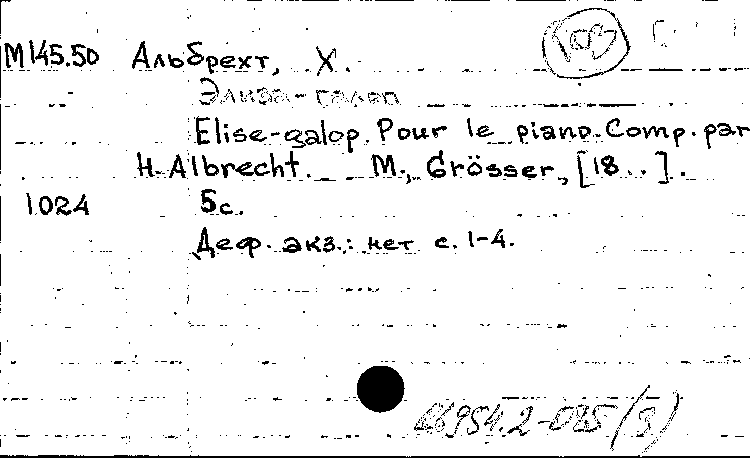 М145.50 Альбрехт, Х.
Элиза-галоп
Elise-galop. Pour le piano. Comp. par
H. Albrecht. M., Grösser, [18..].
1024 5с.
Деф. экз.: нет с. 1-4.